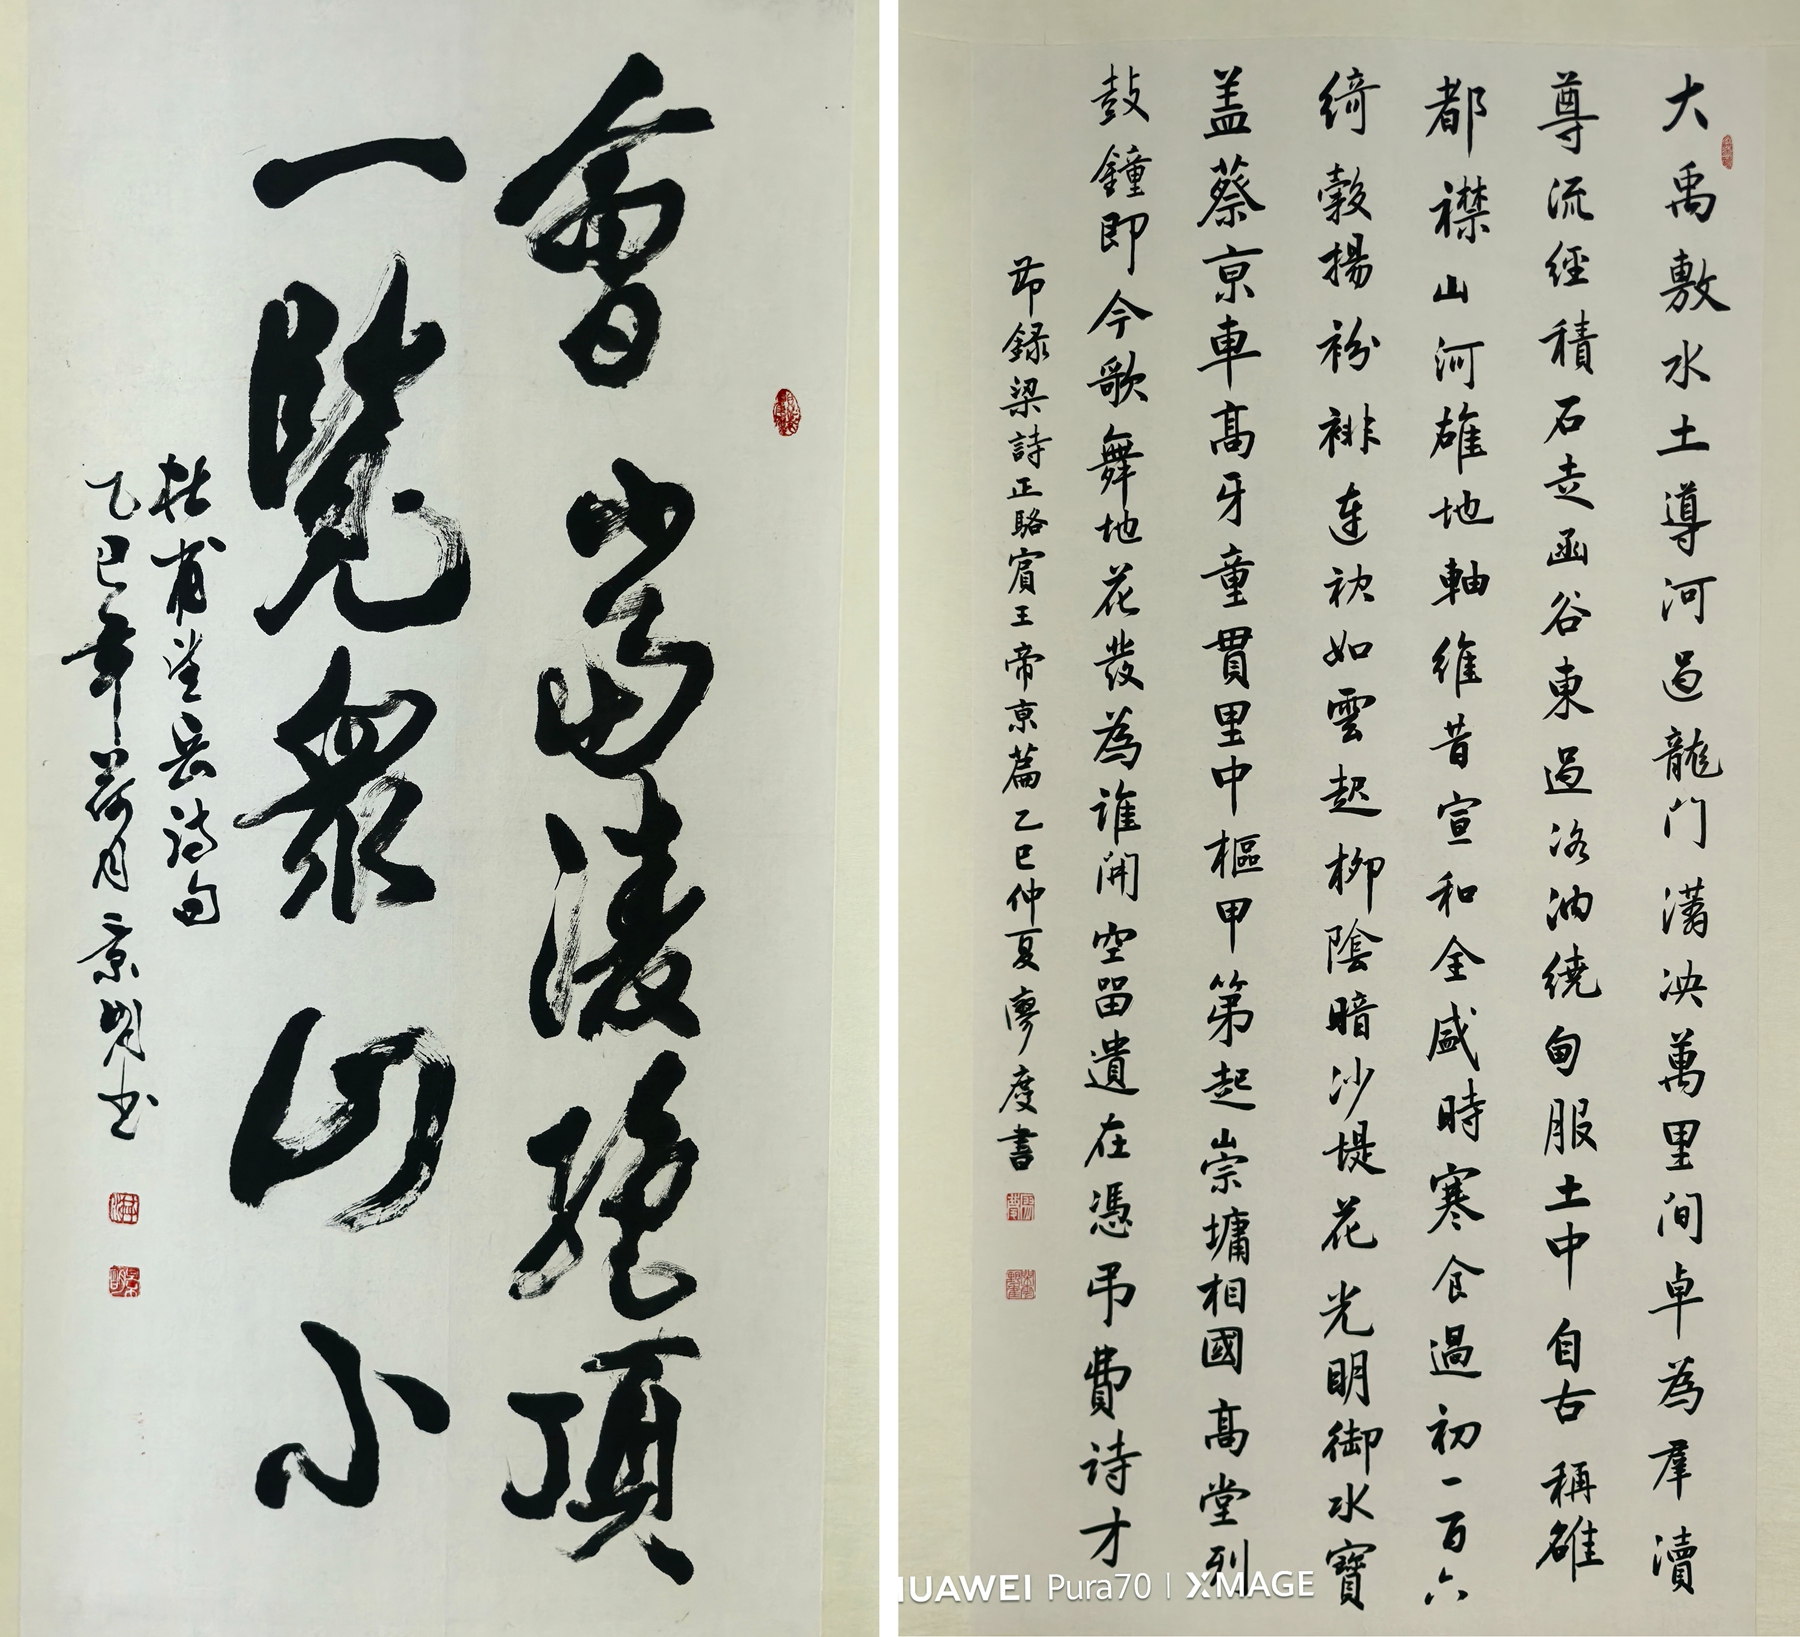 會當凌絕頂
一覽衆山小
杜甫望岳诗句
乙巳年荷月景明书
大禹敷水土導河過龍门瀁泱萬里间卓為羣瀆
尊流經積石走函谷東過洛汭繞甸服土中自古稱雄
都襟山河雄地軸維昔宣和全盛時寒食過初一百六
綺縠揚衯褂連袂如雲起柳陰暗沙堤花光明御水寶
盖蔡京車高牙童貫里中樞甲第起崇墉相國高堂列
鼓鐘即今歌舞地花發為誰開空留遺在憑弔費诗才
節録梁詩正駱賓王帝京篇乙巳仲夏廖度書
HUAWEI Pura70 | XMAGE